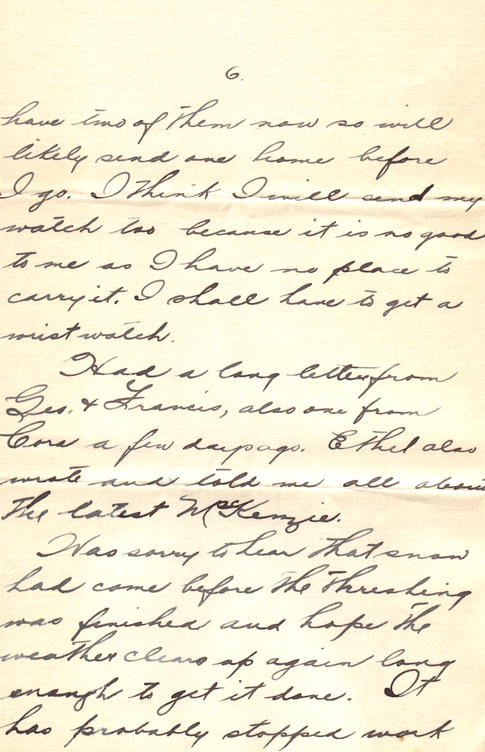 6.
have two of them now so will
likely send one home before
I go. I think I will send my
watch too because it is no good
to me as I have no place to
carry it. I shall have to get a
wrist watch.
Had a long letter from
Geo. & Francis, also one from
Cora a few days ago. Ethel also
wrote and told me all about
the latest McKenzie.
Was sorry to hear that snow
had come before the threshing
was finished and hope the
weather clears up again long
enough to get it done. It
has probably stopped work